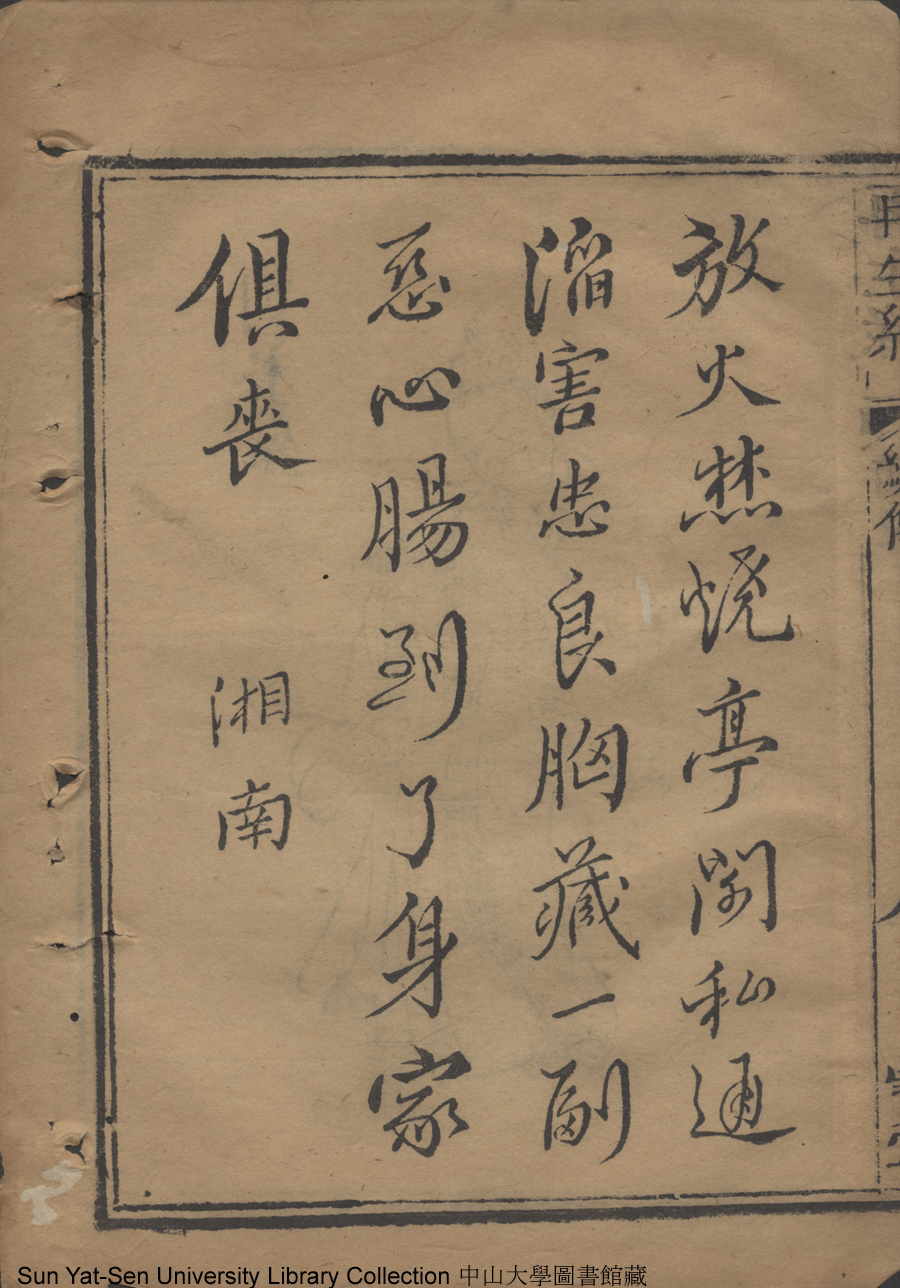 放火焚烧亭閣私通
陷害忠良胸藏一副
惡心腸到了身家
俱喪　湘南
Sun Yat-Sen University Library Collection 中山大學圖書館藏